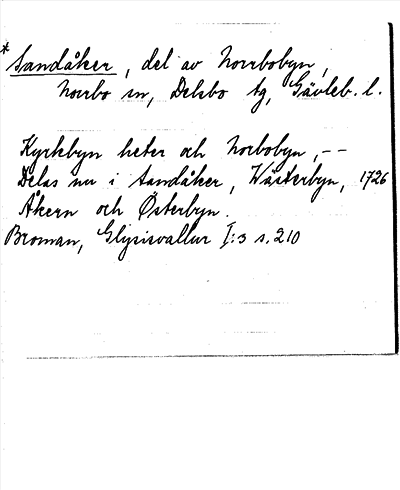 * Sandåker, del av Norrbobyn,
Norrbo sn, Delsbo tg, Gävleb. l.
Kyrkbyn heter och Norbobyn, --
Delas nu i Sandåker, Wästerbyn, 1726
Åkern och Österbyn.
Broman, Glysisvallur I:3 s. 210